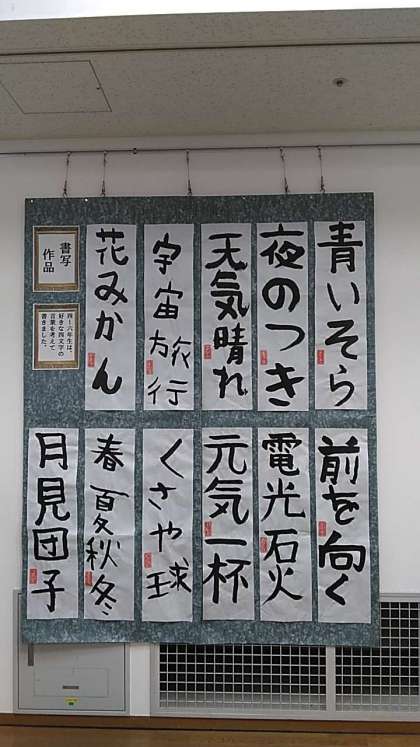 青いそら
夜のつき
天気晴れ
宇宙旅行
花みかん
書写
作品
四～六年生は、
好きな四文字の
言葉を考えて
書きました。
前を向く
電光石火
元気一杯
くさや球
春夏秋冬
月見団子